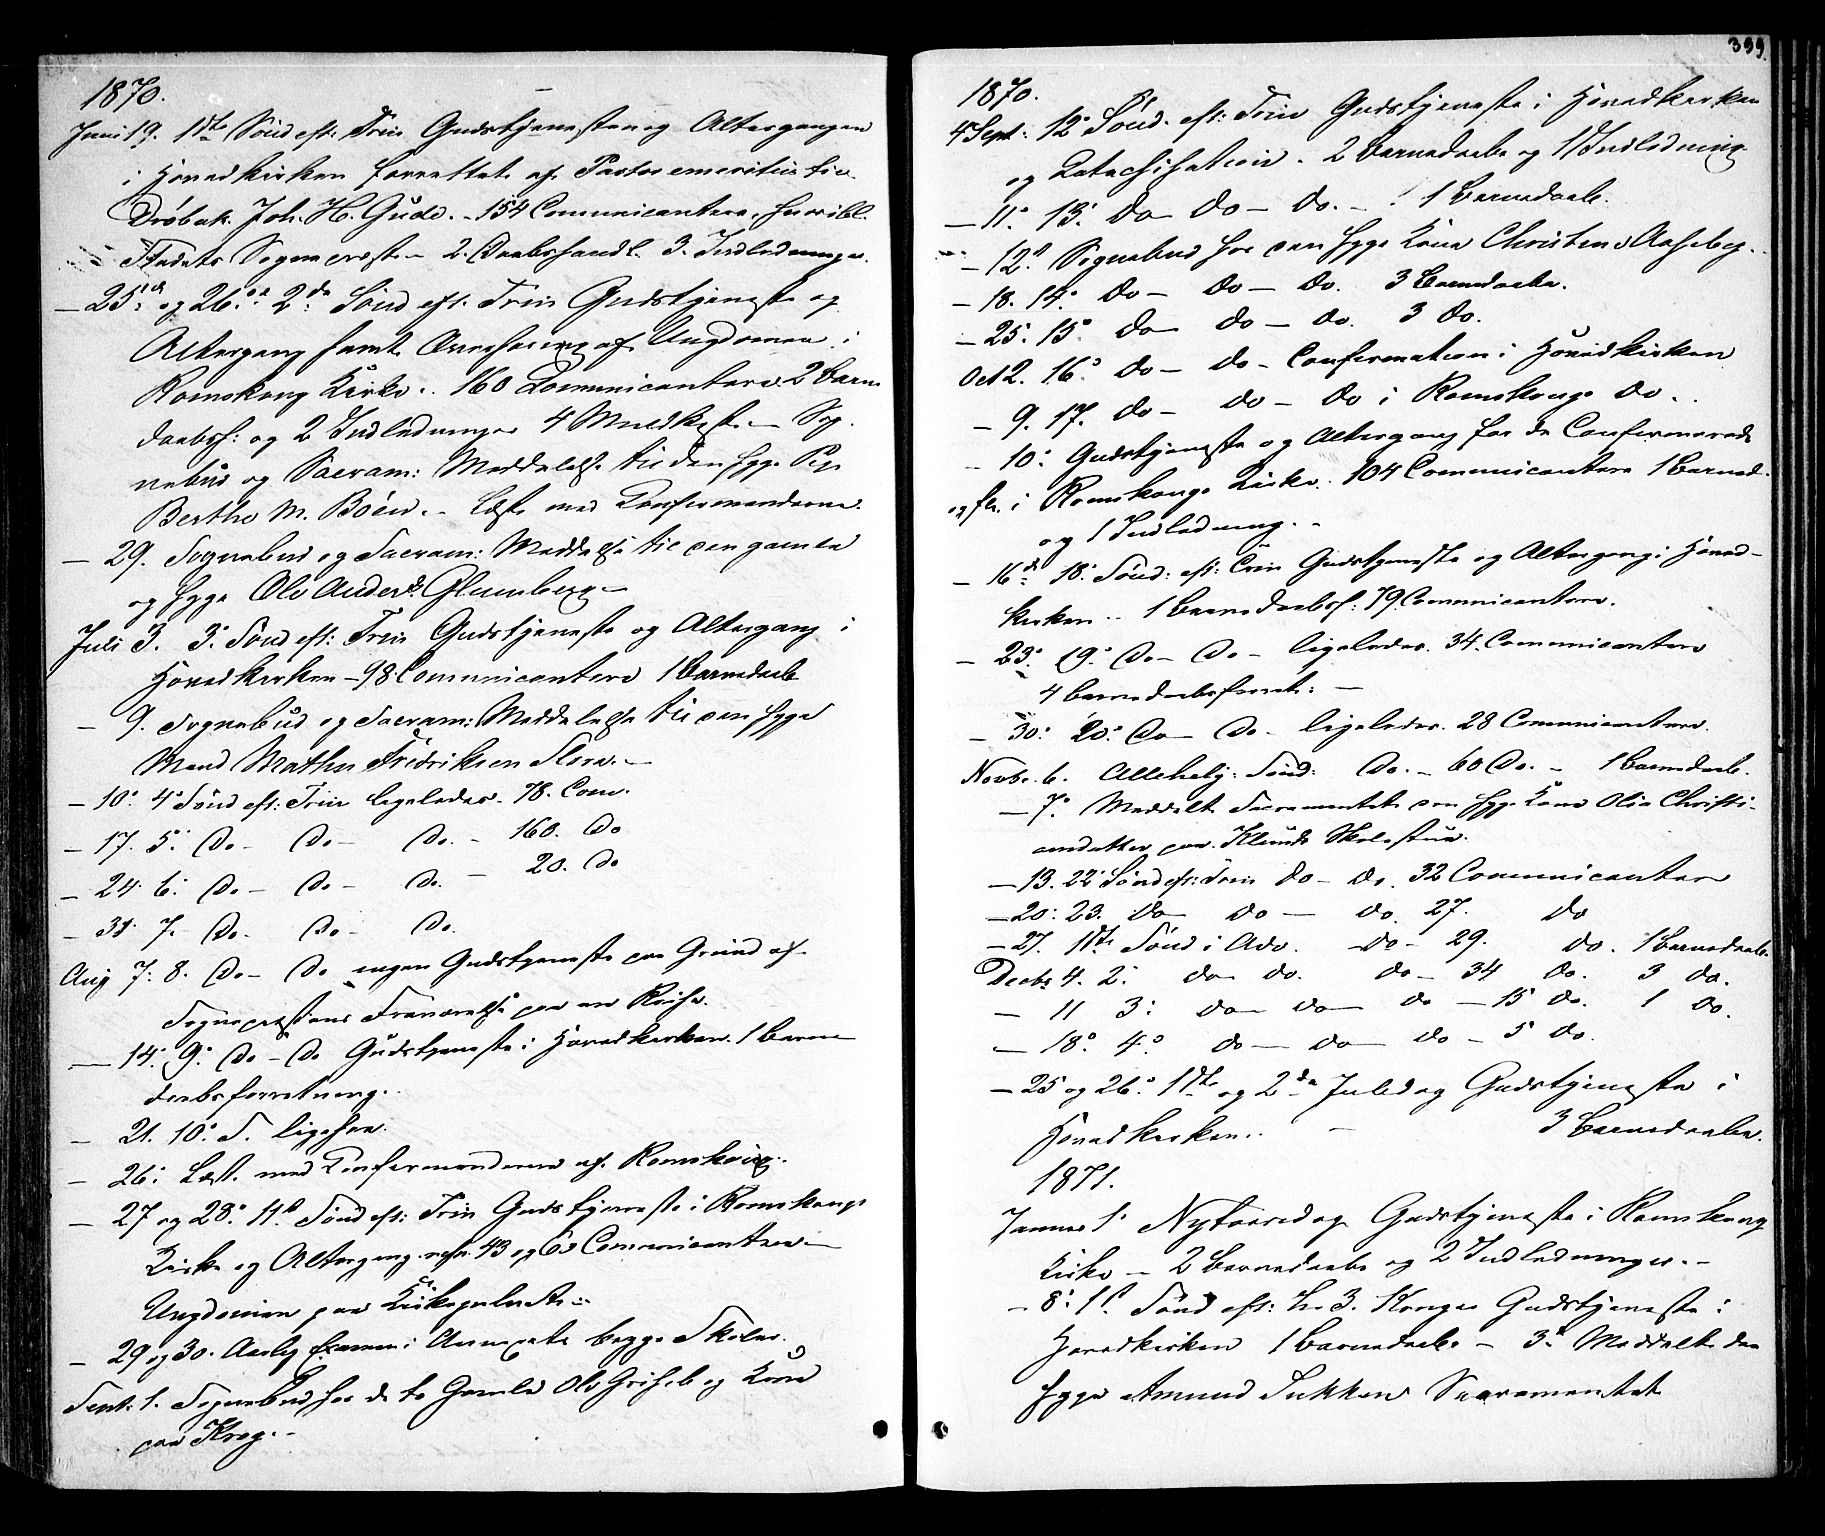 1870.
Juni 19. 11te Sönd eft: Trin Gudstjenesten og Altergangen
i Hovedkirken forrettet af Pastor emeritus fra
Dröbak Joh. H. Gude. - 154 Communicantere,
Stedets Sognepræst - 2 Daabshandl. 3. Indledninger.
- 25de og 26de 2den Sönd eft. Trin Gudstjeneste og
Altergang samt Overhöring af Ungdommen i
Romskoug Kirke. 160 Communicantere 2 Barne
daabsf: og 2 Indledninger 4 - Sog
nebud og Sacram: Meddelelse til den syge Pige
Berthe M. Böen. - Læst med Confirmanderne.
- 29. Sognebud og Sacram: Meddelelse til den gamle
og syge Ole Anders. Glumberg -
Juli 3. 3. Sönd eft: Trin Gudstjeneste og Altergang i
Hovedkirken - 98 Communicantere 1 Barnedaab
- 9. Sognebud og Sacram: Meddelelse til den syge
Mand Mathis Fredriksen -
- 10. 4. Sönd eft: Trin ligeledes. 78. Com.
- 17. 5. Do - Do - Do. - 160. Do
- 24. 6. Do - Do - Do. - 20. Do
- 31. 7. Do. Do - Do.
Aug 7. 8. Do - Do ingen Gudstjeneste paa Grund af
Sognepræstens Fraværelse paa en Reise.
- 14. 9. Do - Do Gudstjeneste i Hovedkirken. 1 Barne
daabsforretning.
- 21. 10. S. ligesaa.
- 26. Læst. med Confirmanderne af Romskoug.
- 27 og 28. 11te Sönd eft: Trin Gudstjeneste i Romskougs
Kirke og Altergang 43 og Communicantere -
Ungdommen paa Kirkegulvet -
- 29 og 30. Aarlig Examen i Annexets begge Skoler.
Sept. 1. Sognebud hos de to Gamle Ole og Kone
paa Krog. -
399.
1870.
4 Sept: 12. Sönd. eft: Trin Gudstjeneste i Hovedkirken
og Catechisation. 2 Barnedaabe og 1 Indledning
- 11. 13. Do Do - Do. - 1 Barnedaab.
- 12. Sognebud hos den syge Kone Christine Aaseby.
- 18. 14. Do - Do - Do. 3 Barnedaabe.
- 25. 15. Do Do - Do. 3 Do.
Oct 2. 16. Do - Do - Confirmation i Hovedkirken
- 9. 17. Do - Do - Do i Romskougs Do.
- 10. Gudstjeneste og Altergang for de Confirmerede
og fl. i Romskougs Kirke. 104 Communicantere 1 Barned.
og 1 Indledning. -
- 16de 18. Sönd: eft: Trin Gudstjeneste og Altergang i Hoved-
kirken - 1 Barnedaabsf: 79 Communicantere.
- 23. 19. Do - Do - ligeledes. 34. Communicantere
4 Barnedaabsforret: -
- 30. 20. Do Do - ligeledes. 28 Communicantere.
Novbr. 6. Allehelg: Sönd: Do. - 60 Do. - 1 Barnedaab.
- 7. Meddelt Sacramentet den syge Kone Olia Christi-
ansdatter paa Klunds Skolestue.
- 13. 22. Sönd eft: Trin Do - Do. 32 Communicantere
- 20. 23. Do Do - Do. 27. Do
- 27. 1ste Sönd i Adv. Do - 29. Do. 1 Barnedaab.
Decbr 4. 2. Do Do. Do - 34 Do. 3 Do.
- 11 3. Do Do Do - 15 Do. 1 Do.
- 18. 4. Do - Do Do - 5 Do.
- 25 og 26. 1ste og 2den Juledag Gudstjeneste i
Hovedkirken. - 3 Barnedaabe.
1871.
Januar 1. Nytaarsdag Gudstjeneste i Romskoug
Kirke - 2 Barnedaabe og 2 Indledninger. -
- 8. 1ste Sönd eft: H. 3. Konger Gudstjeneste i
Hovedkirken 1 Barnedaab - 3. Meddelt den
syge Amund Sukken Sacramentet